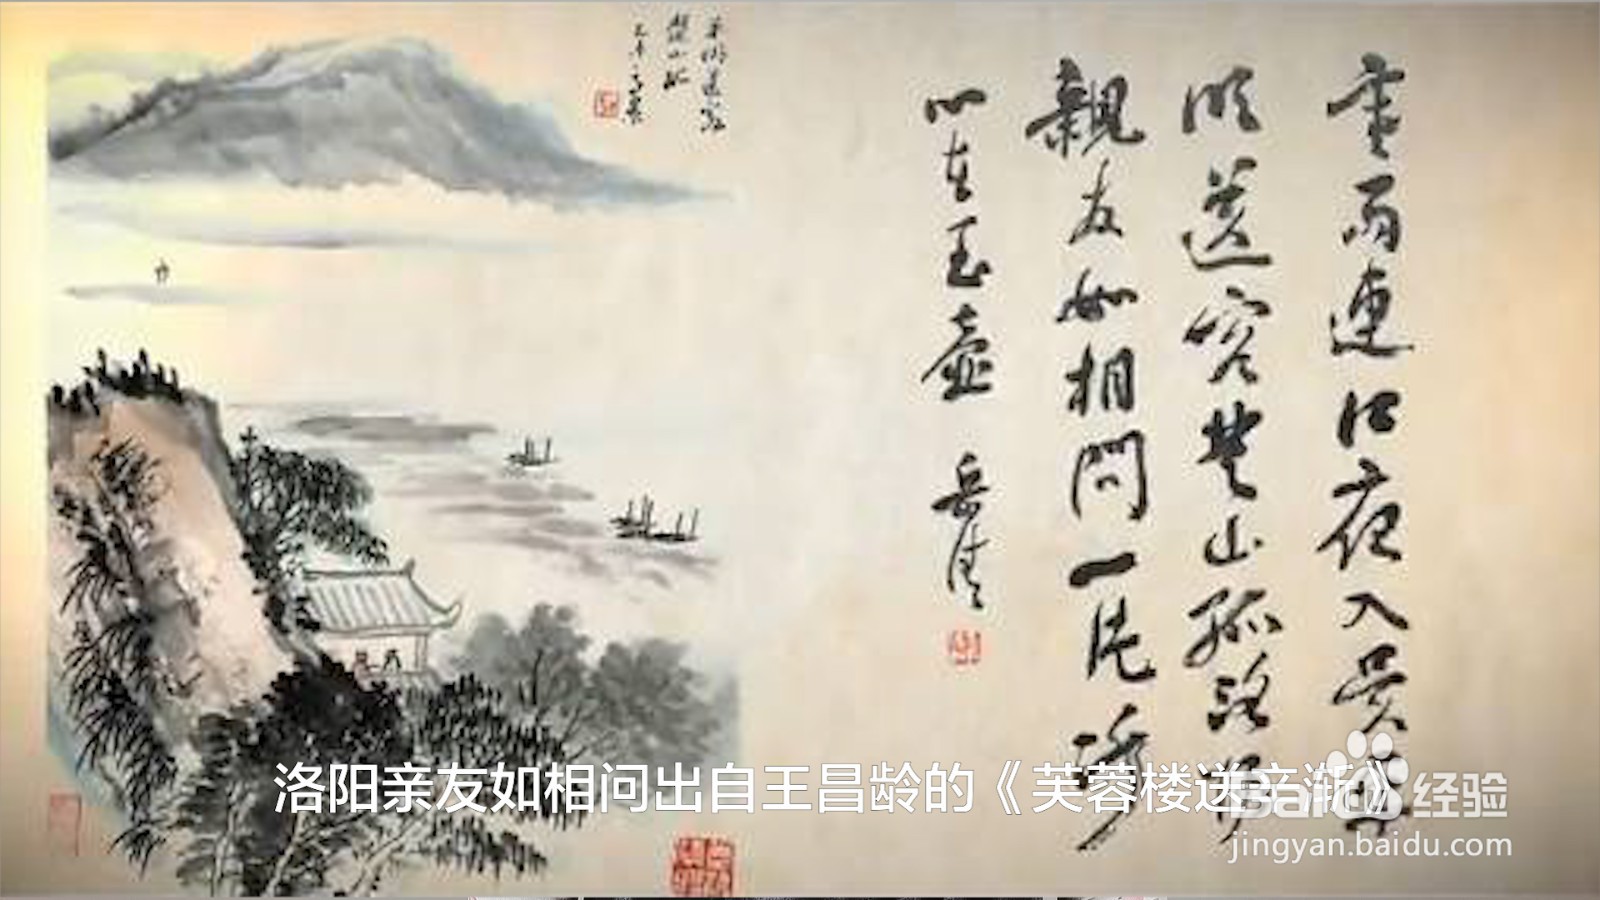 寒雨連江夜入吳平
明送客楚山孤洛陽
親友如相問一片冰
心在玉壺
洛阳亲友如相问出自王昌龄的《芙蓉楼送辛渐》
Baidu经验
jingyan.baidu.com